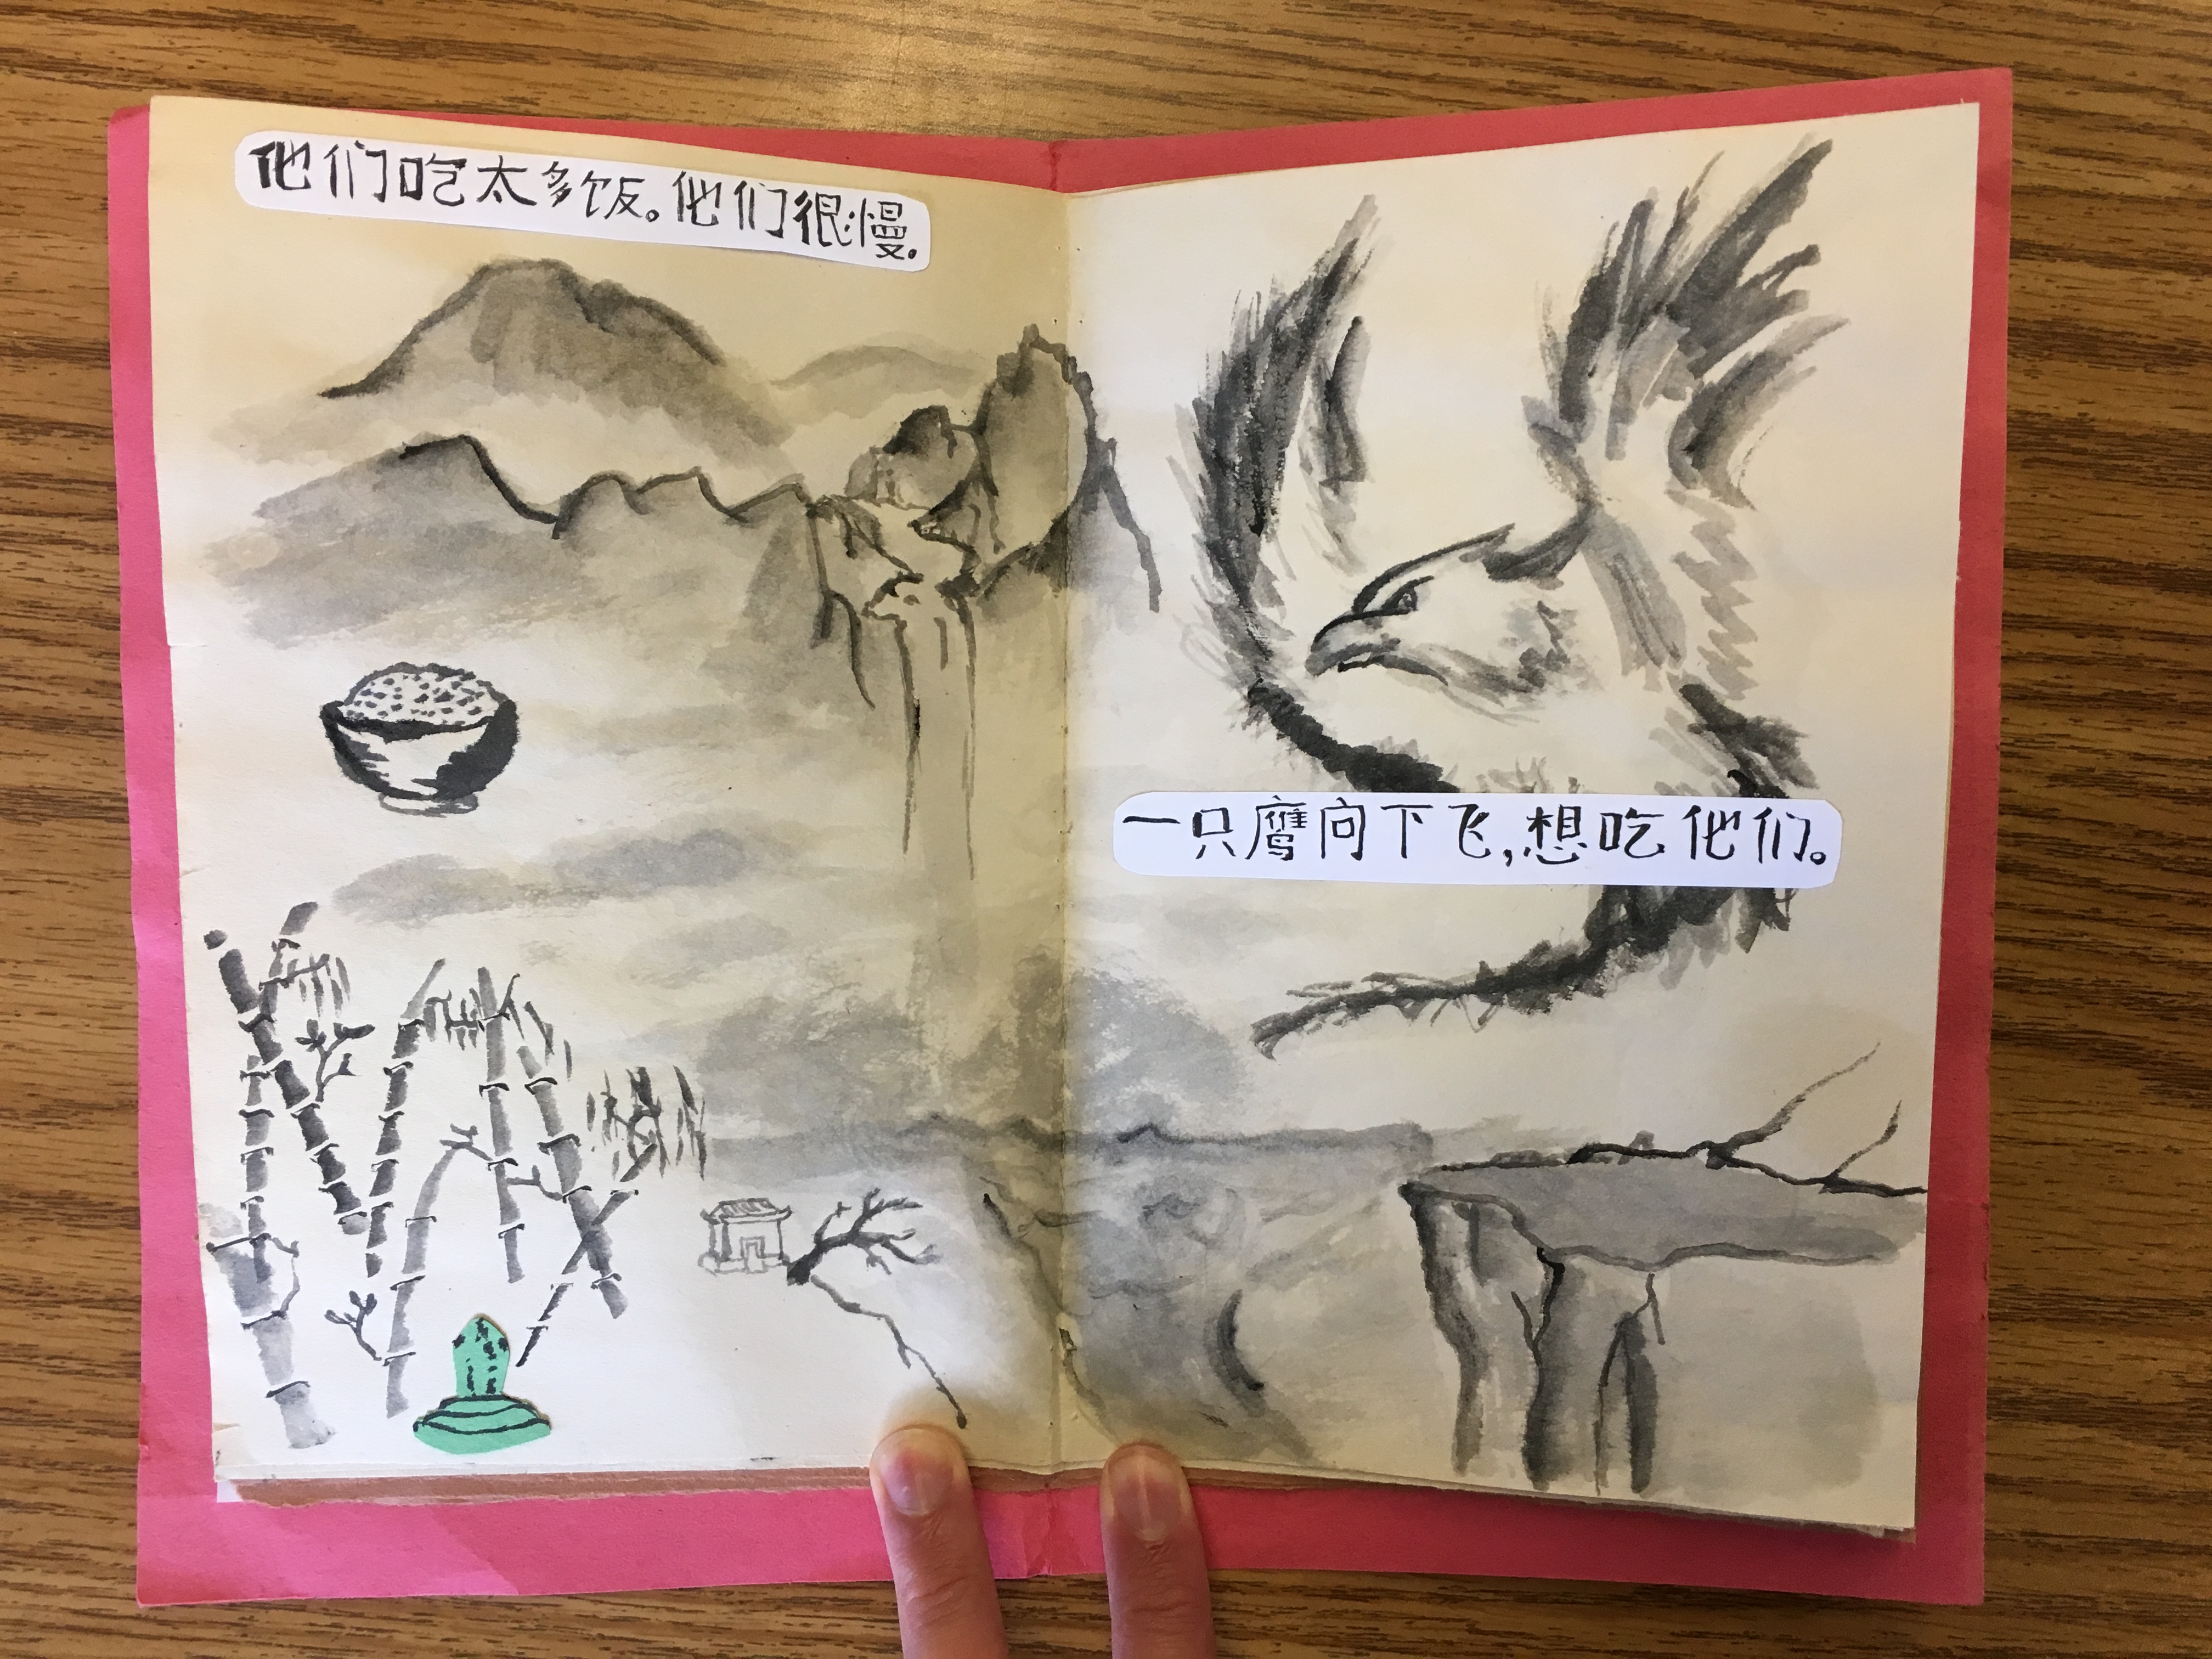 他们吃太多饭。他们很慢。
一只鹰向下飞,想吃他们。